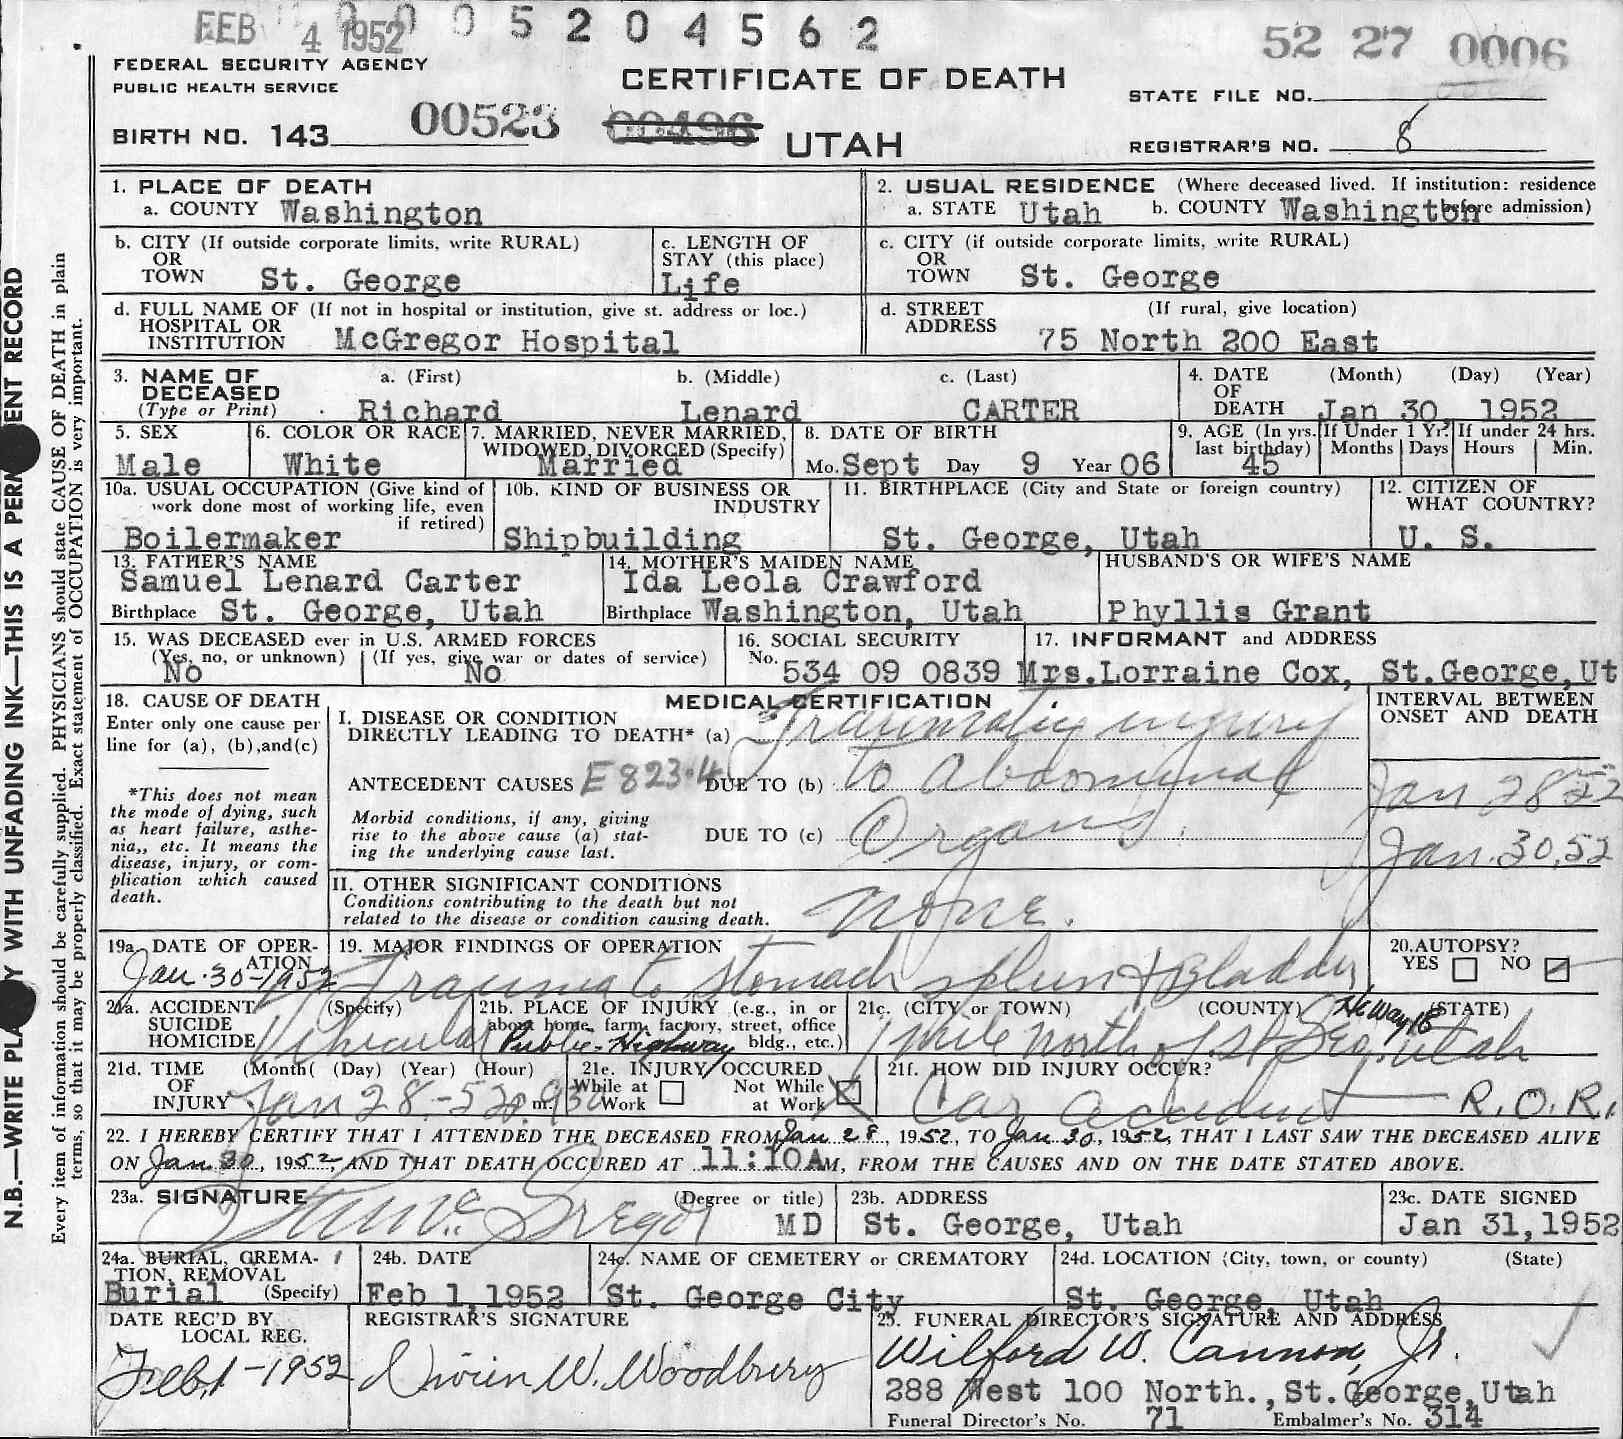 FEB 4 1952 0 0 5 2 0 4 5 6 2
52 27 0006
FEDERAL SECURITY AGENCY
PUBLIC HEALTH SERVICE
CERTIFICATE OF DEATH
STATE FILE NO.
BIRTH NO. 143 00523 00496 UTAH
REGISTRAR'S NO. 8
N.B.—WRITE PLA Y WITH UNFADING INK—THIS IS A PERM ENT RECORD
Every item of information should be carefully supplied. PHYSICIANS should state CAUSE OF DEATH in plain
terms, so that it may be properly classified. Exact statement of OCCUPATION is very important.
1. PLACE OF DEATH
a. COUNTY Washington
2. USUAL RESIDENCE (Where deceased lived. If institution: residence
before admission)
a. STATE Utah b. COUNTY Washington
b. CITY (If outside corporate limits, write RURAL)
OR
TOWN St. George
c. LENGTH OF
STAY (this place)
Life
c. CITY (if outside corporate limits, write RURAL)
OR
TOWN St. George
d. FULL NAME OF (If not in hospital or institution, give st. address or loc.)
HOSPITAL OR
INSTITUTION McGregor Hospital
d. STREET (If rural, give location)
ADDRESS 75 North 200 East
3. NAME OF a. (First) b. (Middle) c. (Last)
DECEASED
(Type or Print) Richard Lenard CARTER
4. DATE (Month) (Day) (Year)
OF
DEATH Jan 30, 1952
5. SEX
Male
6. COLOR OR RACE
White
7. MARRIED, NEVER MARRIED,
WIDOWED, DIVORCED (Specify)
Married
8. DATE OF BIRTH
Mo. Sept Day 9 Year 06
9. AGE (In yrs. last birthday)
45
If Under 1 Yr.
Months Days
If under 24 hrs.
Hours Min.
10a. USUAL OCCUPATION (Give kind of
work done most of working life, even
if retired)
Boilermaker
10b. KIND OF BUSINESS OR
INDUSTRY
Shipbuilding
11. BIRTHPLACE (City and State or foreign country)
St. George, Utah
12. CITIZEN OF
WHAT COUNTRY?
U. S.
13. FATHER'S NAME
Samuel Lenard Carter
Birthplace St. George, Utah
14. MOTHER'S MAIDEN NAME
Ida Leola Crawford
Birthplace Washington, Utah
HUSBAND'S OR WIFE'S NAME
Phyllis Grant
15. WAS DECEASED ever in U.S. ARMED FORCES
(Yes, no, or unknown) (If yes, give war or dates of service)
No No
16. SOCIAL SECURITY
No. 534 09 0839
17. INFORMANT and ADDRESS
Mrs.Lorraine Cox, St.George,Ut
18. CAUSE OF DEATH
Enter only one cause per
line for (a), (b),and(c)
*This does not mean
the mode of dying, such
as heart failure, asthe-
nia,, etc. It means the
disease, injury, or com-
plication which caused
death.
MEDICAL CERTIFICATION
I. DISEASE OR CONDITION
DIRECTLY LEADING TO DEATH* (a) Traumatic injury
ANTECEDENT CAUSES E 823.4 DUE TO (b) to Abdominal
Morbid conditions, if any, giving
rise to the above cause (a) stat-
ing the underlying cause last.
DUE TO (c) Organs.
INTERVAL BETWEEN
ONSET AND DEATH
Jan 28 52
Jan. 30, 52
II. OTHER SIGNIFICANT CONDITIONS
Conditions contributing to the death but not
related to the disease or condition causing death.
none.
19a. DATE OF OPER-
ATION
Jan. 30-1952
19. MAJOR FINDINGS OF OPERATION
Trauma to Stomach spleen & Bladder
20.AUTOPSY?
YES NO
21a. ACCIDENT (Specify)
SUICIDE
HOMICIDE Vehicular
21b. PLACE OF INJURY (e.g., in or
about home, farm, factory, street, office
bldg., etc.)
Public-Highway
21c. (CITY OR TOWN) (COUNTY) (STATE)
1 mile North of St Geo. Utah
21d. TIME (Month( (Day) (Year) (Hour)
OF
INJURY Jan 28-52 m.
21e. INJURY OCCURED
While at
Work
Not While
at Work
21f. HOW DID INJURY OCCUR?
Car accident — R.O.R.
22. I HEREBY CERTIFY THAT I ATTENDED THE DECEASED FROM Jan 28, 1952, TO Jan 30, 1952, THAT I LAST SAW THE DECEASED ALIVE
ON Jan. 30, 1952, AND THAT DEATH OCCURED AT 11:10AM, FROM THE CAUSES AND ON THE DATE STATED ABOVE.
23a. SIGNATURE (Degree or title)
McGregor MD
23b. ADDRESS
St. George, Utah
23c. DATE SIGNED
Jan 31,1952
24a. BURIAL, CREMA-
TION, REMOVAL
(Specify)
Burial
24b. DATE
Feb 1,1952
24c. NAME OF CEMETERY or CREMATORY
St. George City
24d. LOCATION (City, town, or county) (State)
St. George, Utah
DATE REC'D BY
LOCAL REG.
Feb.1-1952
REGISTRAR'S SIGNATURE
W. Woodbury
25. FUNERAL DIRECTOR'S SIGNATURE AND ADDRESS
Wilford W. Cannon, Jr.
288 West 100 North.,St.George,Utah
Funeral Director's No. 71 Embalmer's No. 314